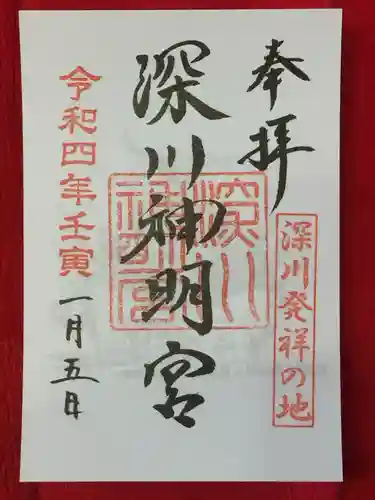 奉拝
深川発祥の地
深川神明宮
深川神明宮
令和四年壬寅
一月五日